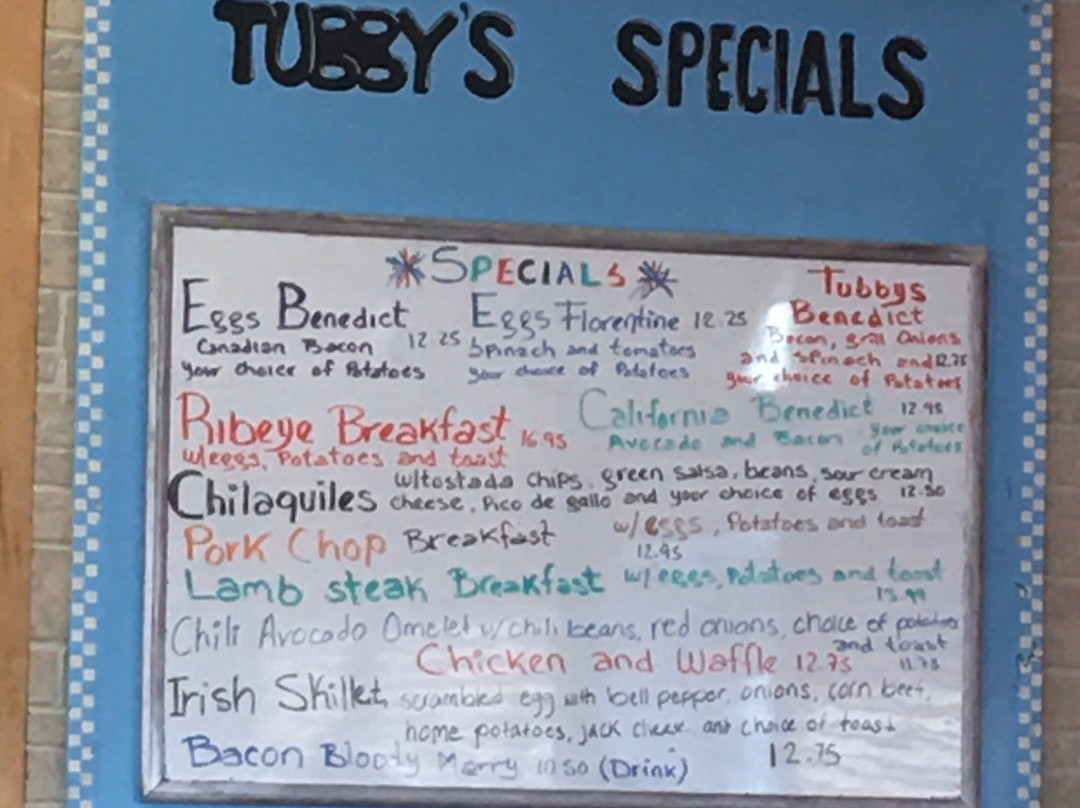 TUBBY'S SPECIALS
SPECIALS
Eggs Benedict 12.25
Canadian Bacon
your choice of Potatoes
Eggs Florentine 12.25
Spinach and tomatoes
your choice of Potatoes
Tubbys
Benedict
Bacon, grill Onions
and spinach and 12.75
your choice of Potatoes
Ribeye Breakfast 16.95
w/eggs, Potatoes and toast
California Benedict 12.95
Avocado and Bacon your choice
of Potatoes
w/tostada chips, green salsa, beans, sour cream
Chilaquiles cheese, Pico de gallo and your choice of eggs 12.50
Pork Chop Breakfast w/eggs, Potatoes and toast
12.95
Lamb steak Breakfast w/ eggs, Potatoes and toast
13.99
Chili Avocado Omelet w/chili beans, red onions, choice of potatoes
and toast
11.75
Chicken and Waffle 12.75
Irish Skillet, scrambled egg with bell pepper, onions, corn beef,
home potatoes, jack cheese and choice of toast
12.75
Bacon Bloody Marry 10.50 (Drink)